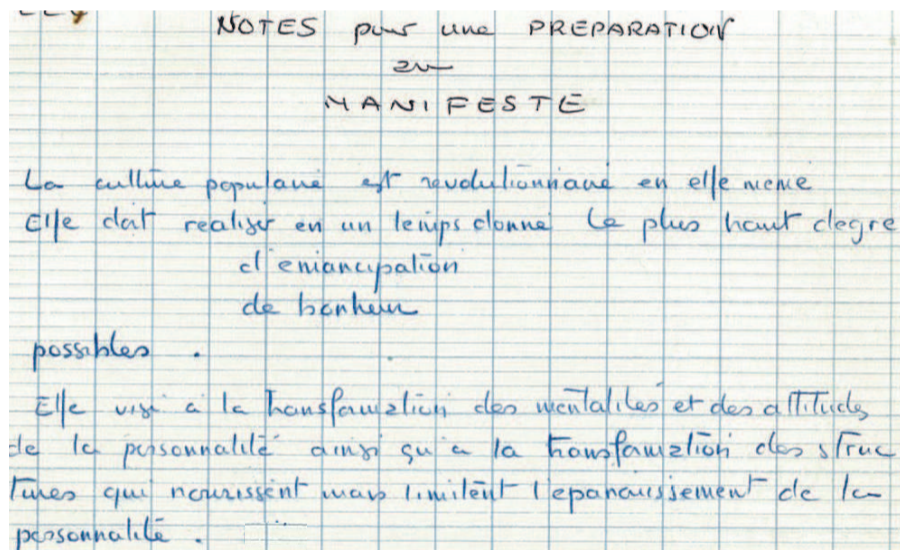 NOTES pour une PREPARATION
au
MANIFESTE
La culture populaire est revolutionnaire en elle meme
Elle doit realiser en un temps donné le plus haut degre
d'emancipation
de bonheur
possibles .
Elle vise a la transformation des mentalités et des attitudes
de la personnalité ainsi qu'a la transformation des struc
tures qui nourissent mais limitent l'epanouissement de la
personnalité .